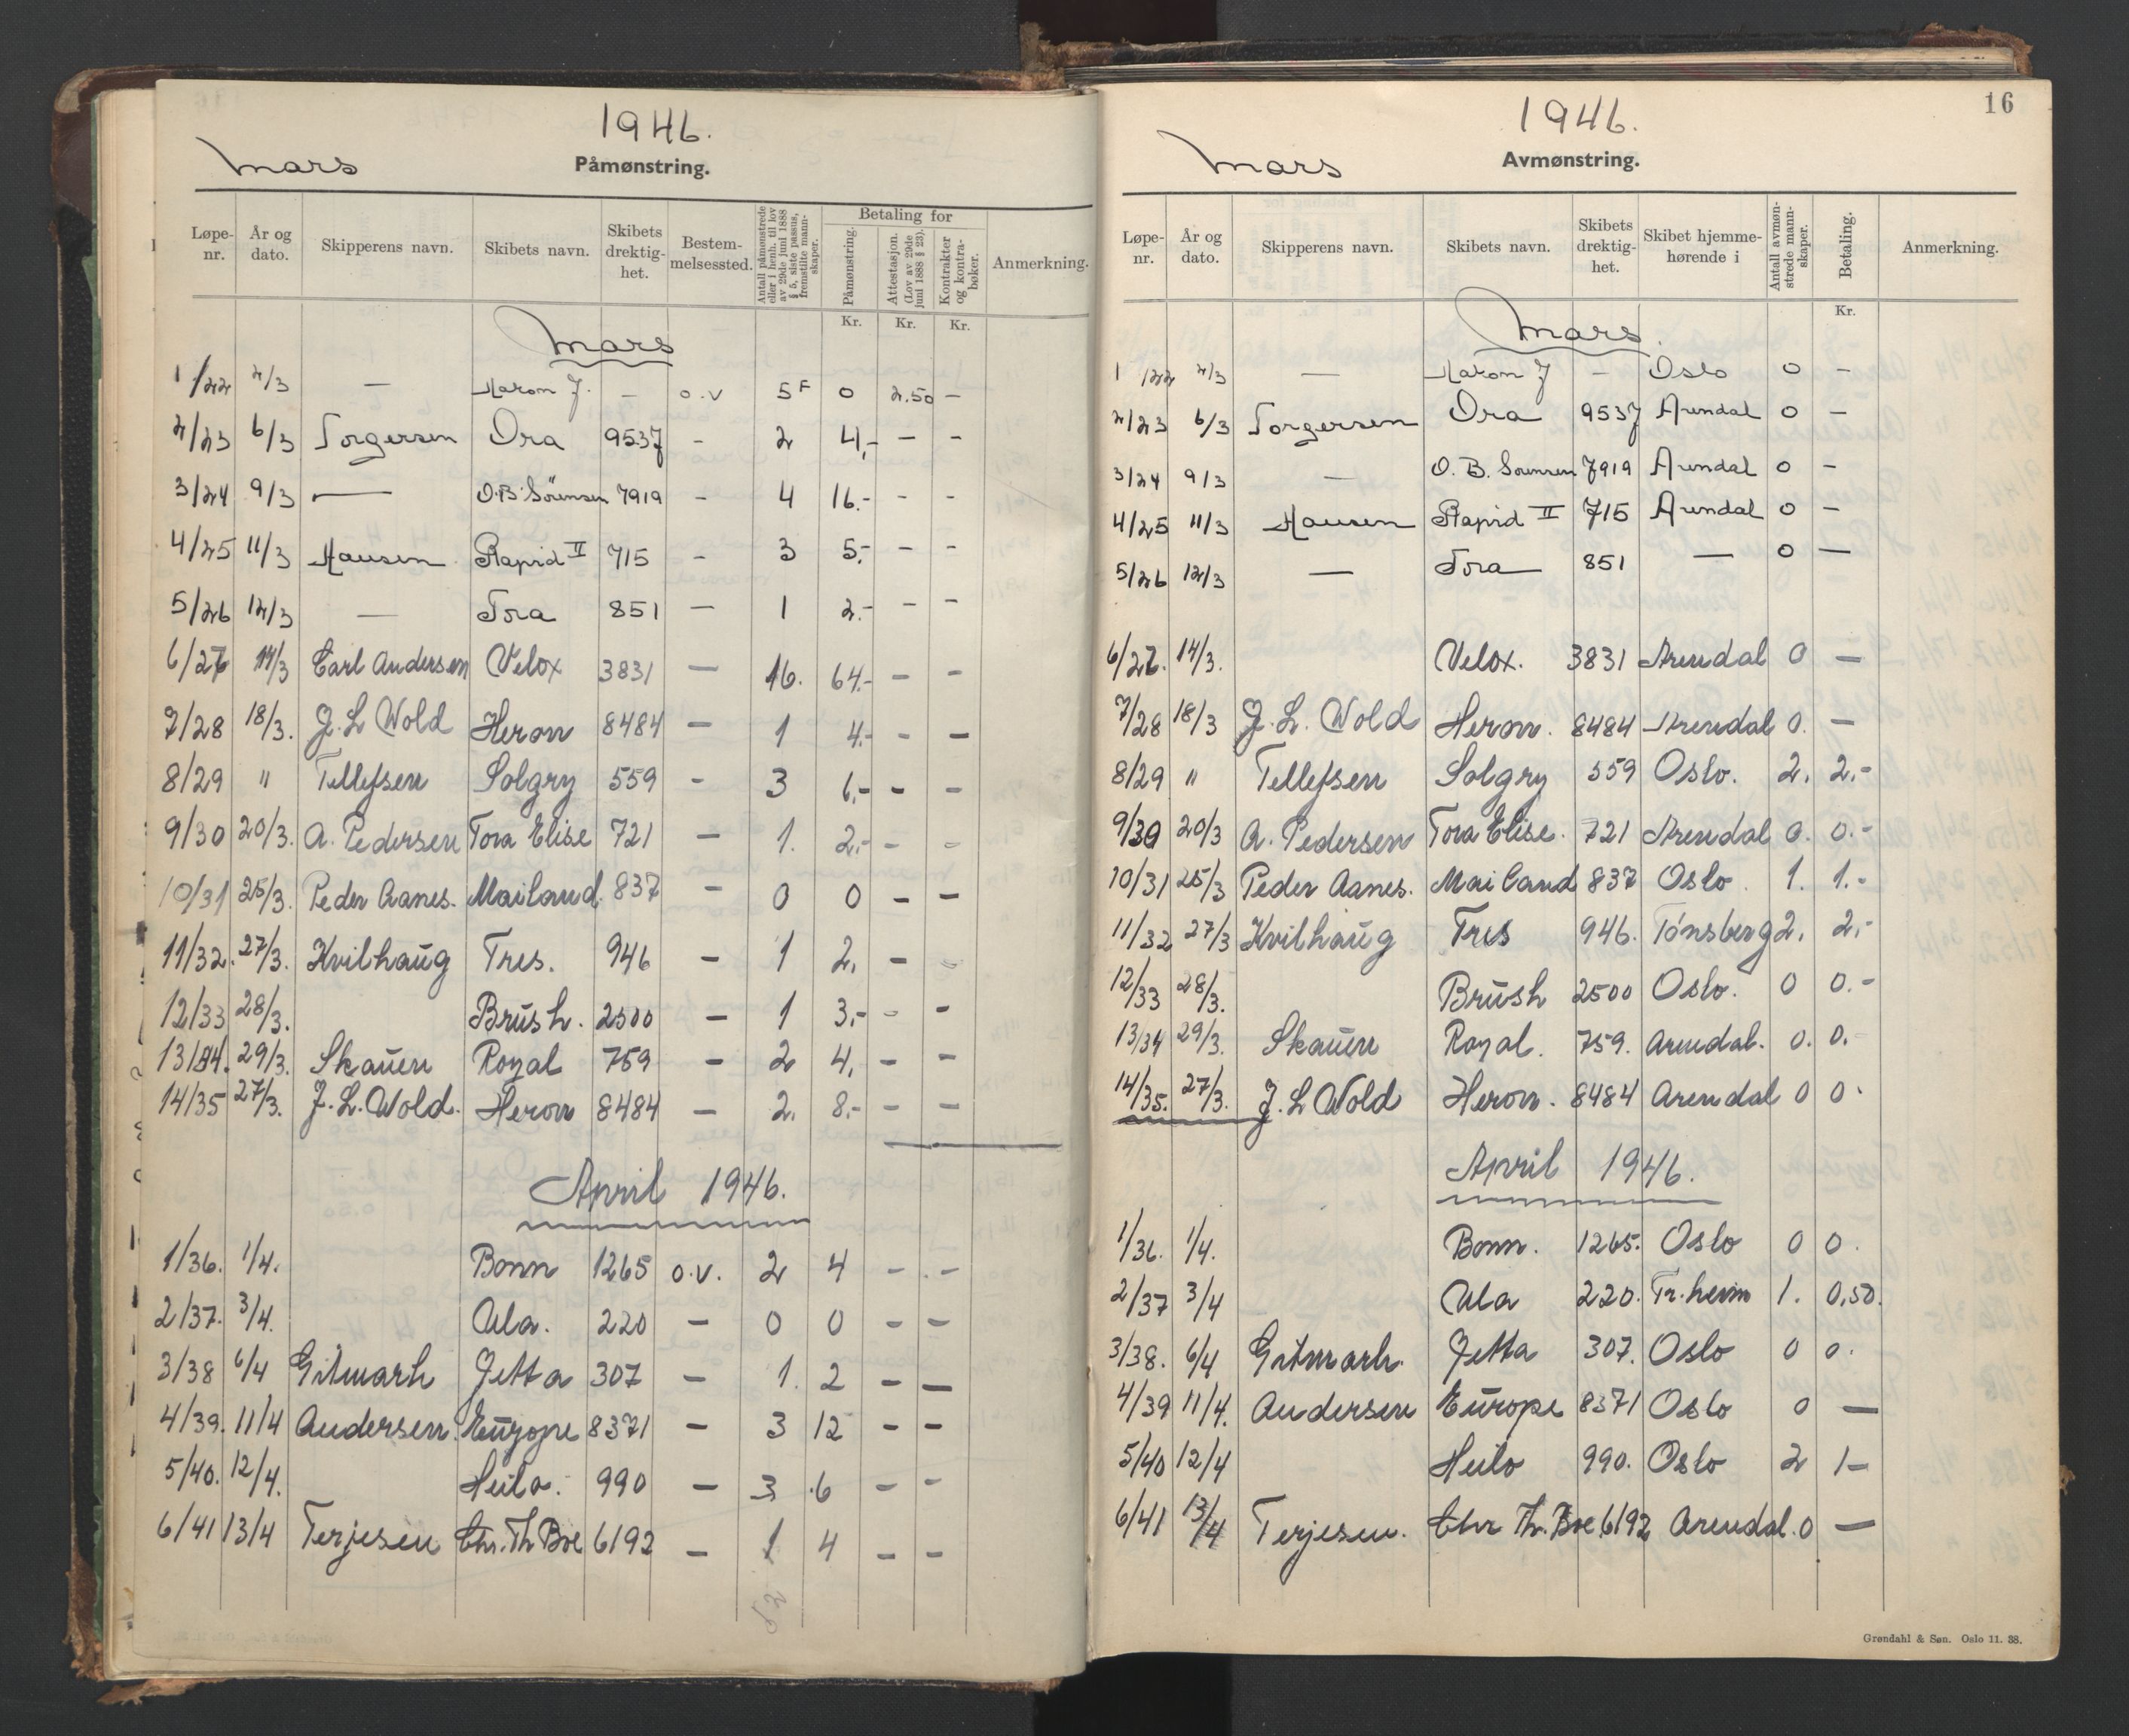 1946.
Mars
Påmønstring.
Løpe-nr. År og dato. Skipperens navn. Skibets navn. Skibets drektig-het. Bestem-melsessted. Antall påmønstrede eller i henh. til lov av 29de juni 1888 § 5, siste passus, fremstilte mann-skaper. Betaling for Påmønstring. Attestasjon. (Lov av 29de juni 1888 § 23). Kontrakter og kontra-bøker. Anmerkning.
Kr. Kr. Kr.
Mars
1/22 2/3 — Hakon J. — o.v 5 F 0 2.50 —
2/23 6/3 Torgersen Ora 9537 - 2 4,- - -
3/24 9/3 — O.B. Sörensen 7919 - 4 16.- - -
4/25 11/3 Hansen Rapid II 715 - 3 5.- - -
5/26 12/3 — Tora 851 — 1 2.- - -
6/27 14/3 Carl Andersen Velox 3831 — 16. 64.- - -
7/28 18/3. J. L Wold Heron 8484 — 1 4.- - -
8/29 " Tellefsen Solgry 559 - 3 6,- - -
9/30 20/3. A. Pedersen Tora Elise 721 — 1. 2,- - -
10/31 25/3. Peder Aanes. Mailand. 837 - 0 0 - -
11/32. 27/3. Kvilhaug Tres. 946 - 1 2. - -
12/33 28/3. Brush. 2500 - 1 3,- - -
13/34. 29/3. Skauen Royal 759 - 2 4, - -
14/35 27/3. J. L. Wold. Heron 8484 - 2. 8,- - -
April 1946.
1/36. 1/4. Bonn 1265 o.v. 2 4 - -
2/37. 3/4. Ula. 220 - 0 0 - -
3/38 6/4 Gitmark Jetta 307 - 1. 2 - -
4/39. 11/4 Andersen. Europe 8371 - 3 12 - -
5/40. 12/4. Heilo. 990 - 3 6 - -
6/41 13/4 Terjesen Chr. Th Boe 6192 - 1 4 - -
16
1946.
Mars
Avmønstring.
Løpe-nr. År og dato. Skipperens navn. Skibets navn. Skibets drektig-het. Skibet hjemme-hørende i Antall avmøn-strede mann-skaper. Betaling. Anmerkning.
Kr.
Mars.
1/22 2/3 — Hakon J - Oslo 0 -
2/23 6/3 Torgersen Ora 9537 Arendal 0 -
3/24 9/3 — O. B. Sörensen 7919 Arendal 0 -
4/25 11/3 Hansen Rapid II 715 Arendal 0 -
5/26 12/3 — Tora 851 — 0 —
6/27. 14/3. Velox. 3831 Arendal 0 —
7/28 18/3 J. L. Wold Heron. 8484 Arendal 0. —
8/29 " Tellefsen Solgry 559 Oslo. 2. 2.-
9/30 20/3 A. Pedersen Tora Elise. 721 Arendal 0. 0.-
10/31 25/3 Peder Aanes. Mailand 837 Oslo. 1. 1.-
11/32 27/3 Kvilhaug Tres 946. Tønsberg 2. 2.-
12/33 28/3. Brush 2500 Oslo. 0 0.-
13/34 29/3. Skauen Royal. 759. Arendal. 0. 0.
14/35. 27/3. J. L Wold Heron. 8484 Arendal 0 0.
April 1946.
1/36. 1/4. Bonn. 1265. Oslo 0 0.
2/37 3/4 Ula 220. Tr.heim 1. 0,50.
3/38. 6/4 Gitmark. Jetta 307. Oslo 0 0.
4/39 11/4. Andersen Europe 8371 Oslo 0 —
5/40 12/4 Heilo 990. Oslo 2 1-
6/41 13/4 Terjesen. Chr Th. Boe 6192 Arendal. 0 —
Grøndahl & Søn. Oslo 11. 38.